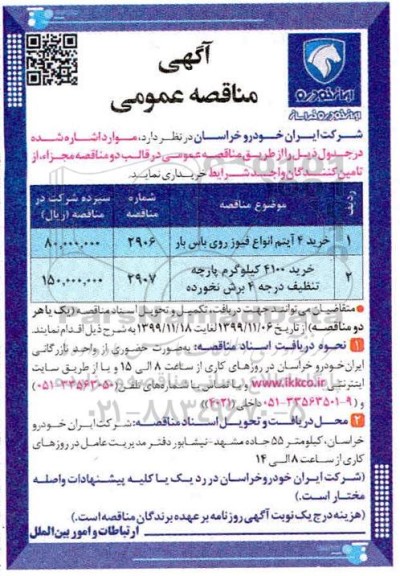 ایران‌خودرو
ایران خودرو خراسان
آگهی
مناقصه عمومی
شرکت ایران خودرو خراسان در نظر دارد، موارد اشاره شده
در جدول ذیل را از طریق مناقصه عمومی در قالب دو مناقصه مجزا، از
تامین کنندگان واجد شرایط خریداری نماید.
ردیف | موضوع مناقصه | شماره مناقصه | سپرده شرکت در مناقصه (ریال)
۱ | خرید ۴ آیتم انواع فیوز روی باس بار | ۲۹۰۶ | ۸۰,۰۰۰,۰۰۰
۲ | خرید ۴۱۰۰ کیلوگرم پارچه تنظیف درجه ۴ برش نخورده | ۲۹۰۷ | ۱۵۰,۰۰۰,۰۰۰
• متقاضیان می‌توانند جهت دریافت، تکمیل و تحویل اسناد مناقصه (یک یا هر
دو مناقصه) از تاریخ ۱۳۹۹/۱۱/۰۶ لغایت ۱۳۹۹/۱۱/۱۸ به شرح ذیل اقدام نمایند.
۱ نحوه دریافت اسناد مناقصه: به‌صورت حضوری از واحد بازرگانی
ایران خودرو خراسان در روزهای کاری از ساعت ۸ الی ۱۵ و یا از طریق سایت
اینترنتی www.ikkco.ir و یا تماس با شماره‌های تلفن (۳۳۵۶۳۰۵۰-۰۵۱)
و (۹-۳۳۵۶۳۵۰۱-۰۵۱ داخلی (۴۰۳۱))
۲ محل دریافت و تحویل اسناد مناقصه: شرکت ایران خودرو
خراسان، کیلومتر ۵۵ جاده مشهد-نیشابور دفتر مدیریت عامل در روزهای
کاری از ساعت ۸ الی ۱۴
(شرکت ایران خودرو خراسان در رد یک یا کلیه پیشنهادات واصله
مختار است.)
(هزینه درج یک نوبت آگهی روزنامه بر عهده برندگان مناقصه است.)
ارتباطات و امور بین الملل
۰۲۱-۸۸۳۴۹۶۷۰-۵